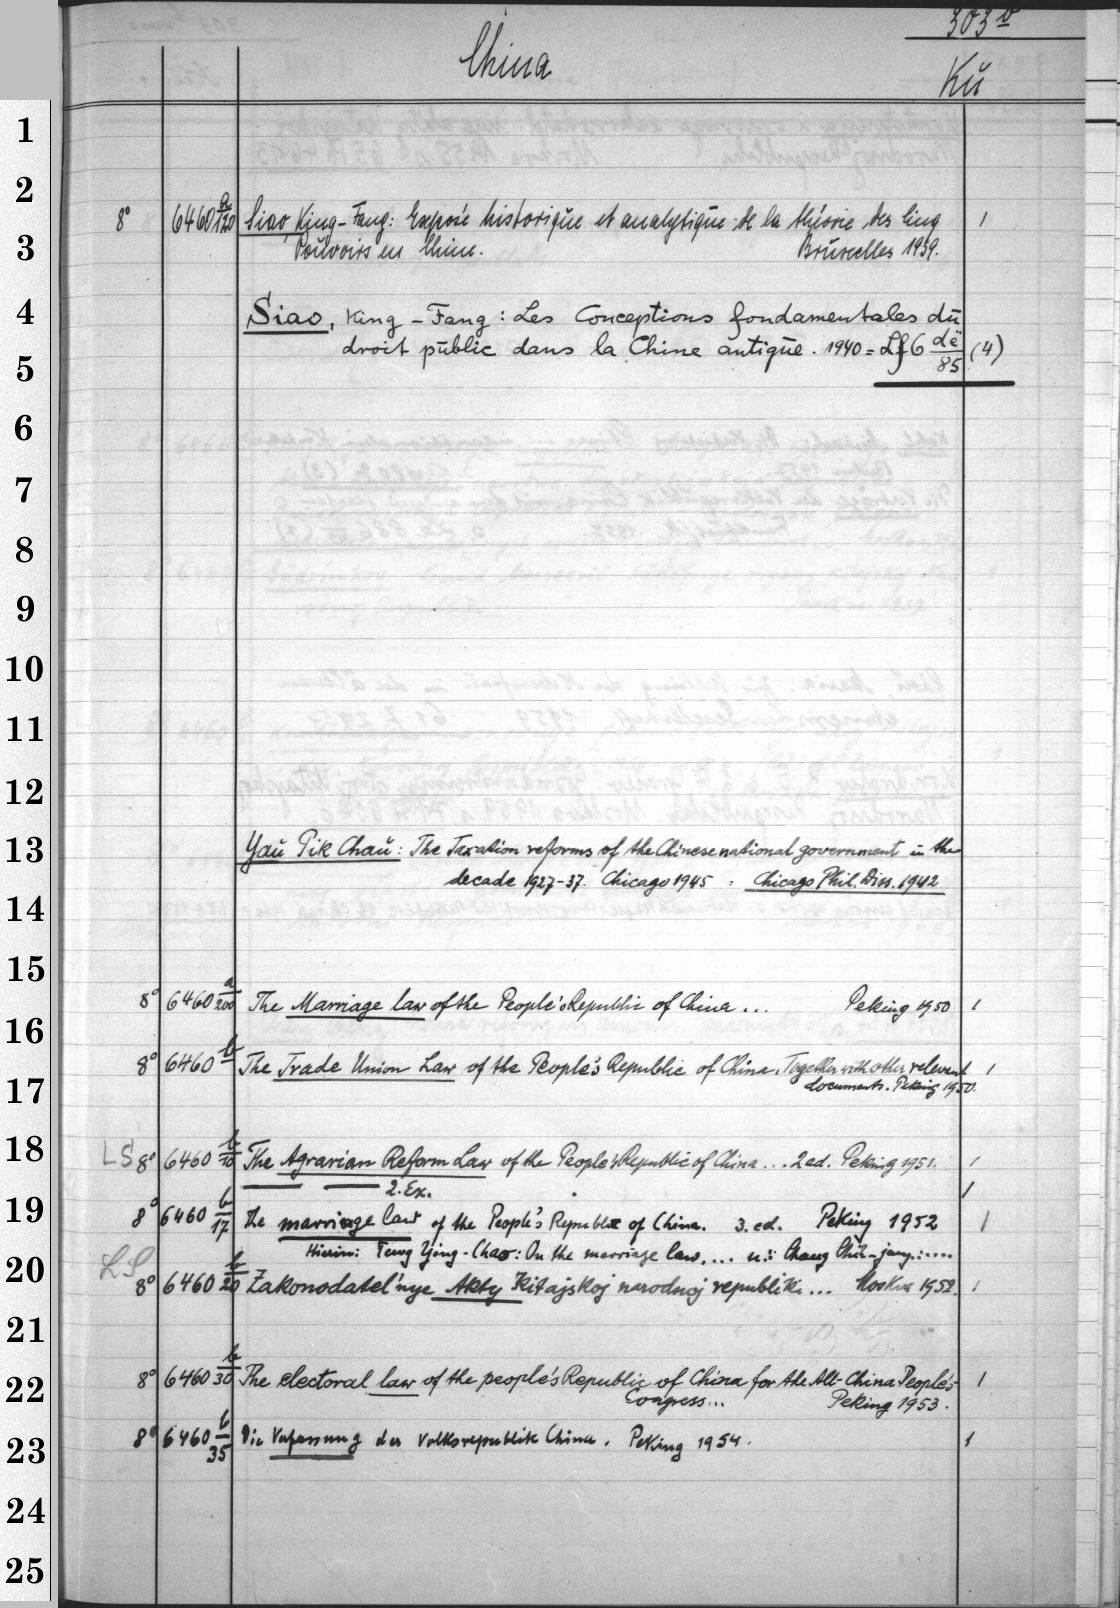 303 v
China
Kŭ
1
2
8° 6460 a/120 Siao, King-Fang: Exposé historique et analytique de la théorie des cinq 1
3
Pouvoirs en Chine. Bruxelles 1939.
4
Siao, King-Fang: Les Conceptions fondamentales du
droit public dans la Chine antique. 1940 = Lf 6 dë/85 (4)
5
6
7
8
9
10
11
12
13
Yaŭ Pik Chaŭ: The Taxation reforms of the Chinese national government in the
decade 1927-37. Chicago 1945 = Chicago Phil. Diss. 1942
14
15
8° 6460 a/200 The Marriage law of the People's Republic of China ... Peking 1950 1
16
8° 6460 b The Trade Union Law of the People's Republic of China. Together with other relevant 1
17
documents. Peking 1950.
18
LS 8° 6460 b/10 The Agrarian Reform Law of the People's Republic of China ... 2 ed. Peking 1951. 1
2. Ex. 1
19
8° 6460 b/17 The marriage law of the People's Republic of China. 3. ed. Peking 1952 1
Hierin: Teng Ying-Chao: On the marriage law, ... u.: Chang Chih-jang: ....
20
LS 8° 6460 b/20 Zakonodatel'nye Akty Kitajskoj narodnoj republiki ... Moskva 1952. 1
21
22
8° 6460 b/30 The electoral law of the people's Republic of China for the All-China People's 1
Congress... Peking 1953.
23
8° 6460 b/35 Die Verfassung der Volksrepublik China. Peking 1954. 1
24
25